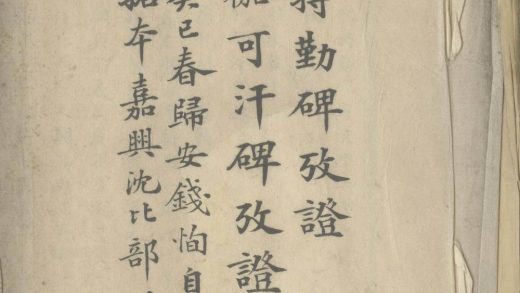 特勤碑攷證
伽可汗碑攷證
癸巳春歸安錢恂自
本嘉興沈比部